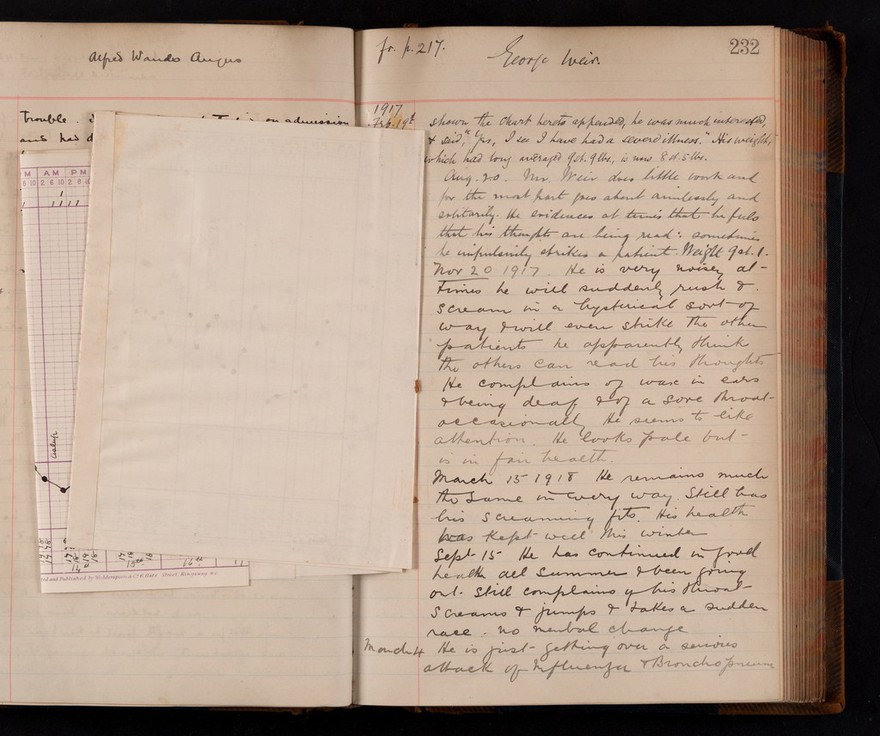 Alfred Wands Angus
trouble. on admission
and had
M AM PM
6 10 2 6 10 2 6
asleep
fr. p. 217.
George Weir.
232
1917
Feb. 19th shown the chart hereto appended, he was much interested,
& said, "Yes, I see I have had a severe illness." His weight,
which had long averaged 9st. 9 lbs, is now 8 st. 5 lbs.
Aug. 20. Mr. Weir does little work and
for the most part goes about aimlessly and
solitarily. He evidences at times that he feels
that his thoughts are being read: sometimes
he impulsively strikes a patient. Weight 9st. 1.
Nov 20 1917. He is very noisy at-
times he will suddenly rush &
scream in a hysterical sort of
way & will even strike the other
patients he apparently think
the others can read his thoughts
He complains of wax in ears
& being deaf & of a sore throat
occasionally He seems to like
attention. He looks pale but-
is in fair health.
March 15 1918 He remains much
the same in every way. Still has
his screaming fits. His health
has kept well this winter
Sept 15 He has continued in good
health all summer & been going
out. Still complains of his throat
screams & jumps & takes a sudden
race. no mental change
March 4 He is just getting over a serious
attack of Influenza & Bronchopneum